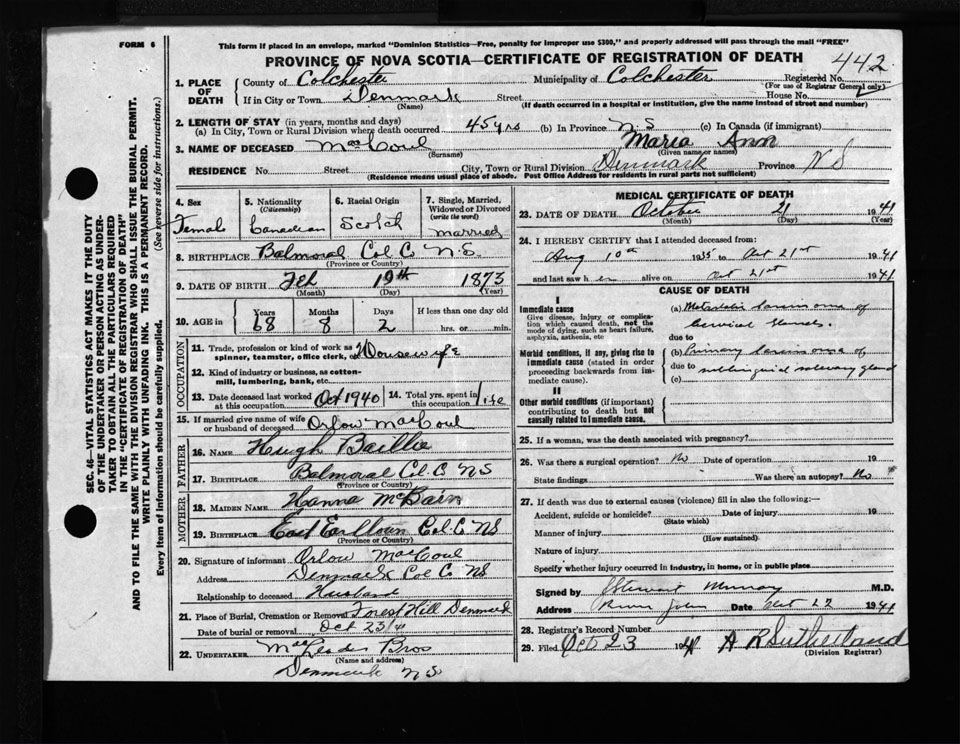 FORM 6
This form if placed in an envelope, marked "Dominion Statistics—Free, penalty for improper use $300," and properly addressed will pass through the mail "FREE"
PROVINCE OF NOVA SCOTIA—CERTIFICATE OF REGISTRATION OF DEATH 442
1. PLACE OF DEATH County of Colchester Municipality of Colchester Registered No.
(For use of Registrar General only)
If in City or Town Denmark Street House No.
(Name) (If death occurred in a hospital or institution, give the name instead of street and number)
2. LENGTH OF STAY (in years, months and days)
(a) In City, Town or Rural Division where death occurred 45 yrs (b) In Province N.S (c) In Canada (if immigrant)
3. NAME OF DECEASED MacCoul Maria Ann
(Surname) (Given name or names)
RESIDENCE No. Street City, Town or Rural Division Denmark Province N S
(Residence means usual place of abode. Post Office Address for residents in rural parts not sufficient)
4. Sex Female
5. Nationality (Citizenship) Canadian
6. Racial Origin Scotch
7. Single, Married, Widowed or Divorced (write the word) married
8. BIRTHPLACE Balmoral Col. C N.S.
(Province or Country)
9. DATE OF BIRTH Feb 19th 1873
(Month) (Day) (Year)
10. AGE in Years Months Days If less than one day old
68 8 2 hrs. or min.
OCCUPATION
11. Trade, profession or kind of work as spinner, teamster, office clerk, etc. Housewife
12. Kind of industry or business, as cotton-mill, lumbering, bank, etc.
13. Date deceased last worked at this occupation Oct 1940 14. Total yrs. spent in this occupation life
15. If married give name of wife or husband of deceased Orlow MacCoul
FATHER
16. NAME Hugh Baillie
17. BIRTHPLACE Balmoral Col. C NS
(Province or Country)
MOTHER
18. MAIDEN NAME Hanna McBain
19. BIRTHPLACE East Earltown Col. C NS
(Province or Country)
20. Signature of informant Orlow MacCoul
Address Denmark Col C. NS
Relationship to deceased Husband
21. Place of Burial, Cremation or Removal Forest Hill Denmark
Date of burial or removal Oct 23/41
22. UNDERTAKER Bros
(Name and address)
Denmark N S
MEDICAL CERTIFICATE OF DEATH
23. DATE OF DEATH October 21 1941
(Month) (Day) (Year)
24. I HEREBY CERTIFY that I attended deceased from:
Aug 10th 1935 to Oct 21st 1941
and last saw her alive on Oct 21st 1941
CAUSE OF DEATH
I
Immediate cause
Give disease, injury or complication which caused death, not the mode of dying, such as heart failure, asphyxia, asthenia, etc
(a) Metastatic Carcinoma of
Cervical Glands.
due to
Morbid conditions, if any, giving rise to immediate cause (stated in order proceeding backwards from immediate cause).
(b) Primary Carcinoma of
due to sublingual salivary gland
(c)
II
Other morbid conditions (if important) contributing to death but not causally related to immediate cause.
25. If a woman, was the death associated with pregnancy?
26. Was there a surgical operation? No Date of operation 19
State findings Was there an autopsy? No
27. If death was due to external causes (violence) fill in also the following:—
Accident, suicide or homicide? Date of injury 19
(State which)
Manner of injury
(How sustained)
Nature of injury
Specify whether injury occurred in industry, in home, or in public place
Signed by Stewart Murray M.D.
Address River John Date Oct 22 1941
28. Registrar's Record Number
29. Filed Oct 23 1941 A R Sutherland
(Division Registrar)
SEC. 46—VITAL STATISTICS ACT MAKES IT THE DUTY
OF THE UNDERTAKER OR PERSON ACTING AS UNDER-
TAKER TO OBTAIN ALL THE PARTICULARS REQUIRED
IN THE "CERTIFICATE OF REGISTRATION OF DEATH"
AND TO FILE THE SAME WITH THE DIVISION REGISTRAR WHO SHALL ISSUE THE BURIAL PERMIT.
WRITE PLAINLY WITH UNFADING INK. THIS IS A PERMANENT RECORD.
Every item of information should be carefully supplied. (See reverse side for instructions)